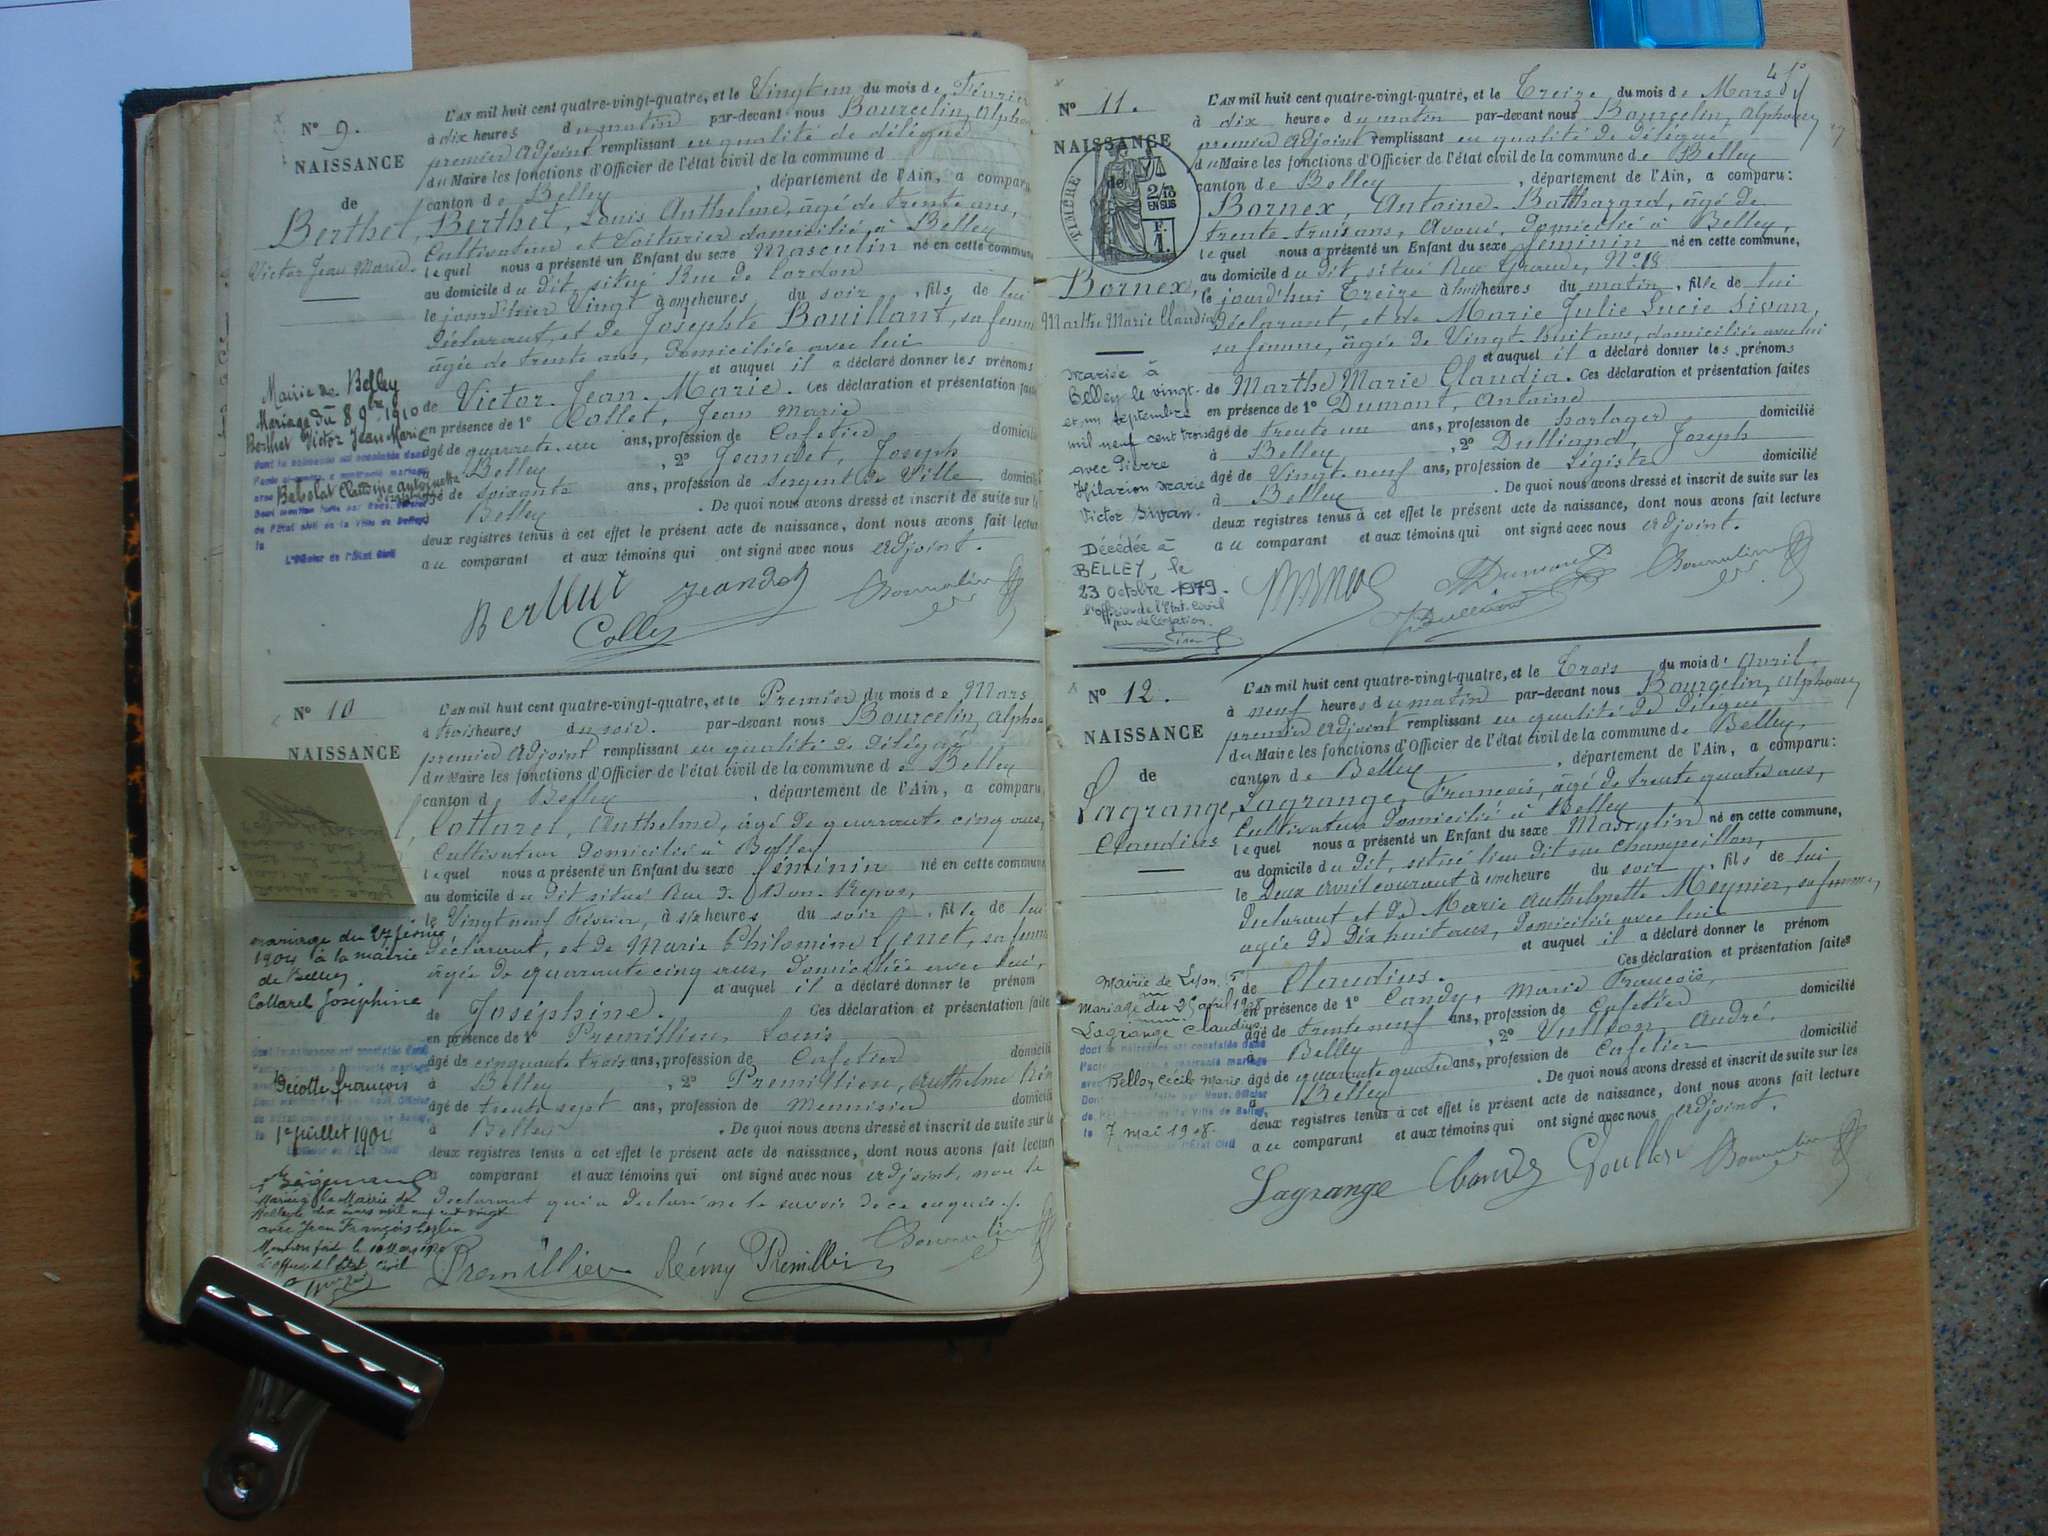 N° 9.
NAISSANCE
de
Berthet,
Victor Jean Marie.
L'AN mil huit cent quatre-vingt-quatre, et le Vingt un du mois de Février
à dix heures du matin par-devant nous Bourcelin, Alphon
premier adjoint remplissant en qualité de délégué
du Maire les fonctions d'Officier de l'état civil de la commune d
canton de Belley, département de l'Ain, a comparu
Berthet, Louis Anthelme, âgé de trente ans,
Cultivateur et Voiturier domicilié à Belley
lequel nous a présenté un Enfant du sexe Masculin né en cette commune
au domicile du dit, situé Rue de
le jourd'hier Vingt à onze heures du soir, fils de lui
déclarant, et de Josephte Bouillant, sa femme
âgée de trente ans, domiciliée avec lui
et auquel il a déclaré donner les prénoms
de Victor Jean Marie. Ces déclaration et présentation faites
en présence de 1° Collet, Jean Marie
âgé de quarante un ans, profession de Cafetier domicilié
à Belley, 2° Jeandet, Joseph
âgé de soixante ans, profession de sergent de Ville domicilié
à Belley. De quoi nous avons dressé et inscrit de suite sur les
deux registres tenus à cet effet le présent acte de naissance, dont nous avons fait lecture
au comparant et aux témoins qui ont signé avec nous adjoint.
Mairie de Belley
Mariage du 8 9bre 1910
Berthet Victor Jean Marie
dont la naissance est constatée dans
l'acte ci-contre, a contracté mariage
avec Claudine Antoinette
de l'Etat civil de la Ville de Belley,
le
L'Officier de l'Etat Civil
Berthet Jeandet
Collet
N° 10
NAISSANCE
L'AN mil huit cent quatre-vingt-quatre, et le Premier du mois de Mars
à trois heures du soir. par-devant nous Bourcelin, Alphon
premier adjoint remplissant en qualité de délégué
du Maire les fonctions d'Officier de l'état civil de la commune de Belley
canton de Belley, département de l'Ain, a comparu
Collarel, Anthelme, âgé de quarante cinq ans,
Cultivateur domicilié à Belley
lequel nous a présenté un Enfant du sexe féminin né en cette commune
au domicile du dit situé Rue de Bon Repos,
le Vingt neuf Février, à six heures du soir, fille de lui
déclarant, et de Marie Philomine Genet, sa femme
âgée de quarante cinq ans, domiciliée avec lui,
et auquel il a déclaré donner le prénom
de Joséphine. Ces déclaration et présentation faites
en présence de 1° Premillieu Louis
âgé de cinquante trois ans, profession de Cafetier domicilié
à Belley, 2° Premillieu, Anthelme
âgé de trente sept ans, profession de Menuisier domicilié
à Belley. De quoi nous avons dressé et inscrit de suite sur les
deux registres tenus à cet effet le présent acte de naissance, dont nous avons fait lecture
au comparant et aux témoins qui ont signé avec nous adjoint, non le
déclarant qui a déclaré ne le savoir de ce enquis./.
mariage du 27 février
1904 à la mairie
de Belley
Collarel Joséphine
Décotte françois
le 1er Juillet 1904
Mariée à la Mairie de
Belley le dix mars mil neuf cent vingt
avec Jean François
Mention faite le 10 Mars 1920
L'officier de l'Etat Civil
Premillieu Rémy Prémillieu
N° 11.
NAISSANCE
de
TIMBRE
2/10
EN SUS
F.
1.
Bornex,
Marthe Marie Claudia
L'AN mil huit cent quatre-vingt-quatre, et le Treize du mois de Mars
à dix heures du matin par-devant nous Bourcelin, Alphonse,
premier adjoint remplissant en qualité de délégué
du Maire les fonctions d'Officier de l'état civil de la commune de Belley
canton de Belley, département de l'Ain, a comparu:
Bornex, Antoine Balthazard, âgé de
trente trois ans, Avoué, domicilié à Belley,
lequel nous a présenté un Enfant du sexe féminin né en cette commune,
au domicile du dit, situé Rue Grande, N° 18
le jourd'hui Treize à huit heures du matin, fille de lui
déclarant, et de Marie Julie Lucie Sivan,
sa femme, âgée de Vingt huit ans, domiciliée avec lui
et auquel il a déclaré donner les prénoms
de Marthe Marie Claudia. Ces déclaration et présentation faites
en présence de 1° Dumont, Antoine
âgé de trente un ans, profession de horloger domicilié
à Belley, 2° Dulliand, Joseph
âgé de Vingt neuf ans, profession de Légiste domicilié
à Belley. De quoi nous avons dressé et inscrit de suite sur les
deux registres tenus à cet effet le présent acte de naissance, dont nous avons fait lecture
au comparant et aux témoins qui ont signé avec nous adjoint.
Mariée à
Belley le vingt
et un septembre
mil neuf cent trois
avec Pierre
Hilarion Marie
Victor Sivan.
Décédée à
BELLEY, le
23 octobre 1979.
l'officier de l'Etat Civil
par délégation.
N° 12.
NAISSANCE
de
Lagrange,
Claudius
L'AN mil huit cent quatre-vingt-quatre, et le Trois du mois d'Avril
à neuf heures du matin par-devant nous Bourcelin, Alphonse,
premier adjoint remplissant en qualité de délégué
du Maire les fonctions d'Officier de l'état civil de la commune de Belley,
canton de Belley, département de l'Ain, a comparu:
Lagrange, François, âgé de trente quatre ans,
Cultivateur domicilié à Belley
lequel nous a présenté un Enfant du sexe Masculin né en cette commune,
au domicile du dit, situé lieu dit sur Champeillon,
le Deux avril courant à une heure du soir, fils de lui
déclarant et de Marie Anthelmette Meynier, sa femme,
âgée de Dix huit ans, domiciliée avec lui
et auquel il a déclaré donner le prénom
de Claudius. Ces déclaration et présentation faites
en présence de 1° Candy, Marie François,
âgé de trente neuf ans, profession de Cafetier domicilié
à Belley, 2° Vullion, André,
âgé de quarante quatre ans, profession de Cafetier domicilié
à Belley. De quoi nous avons dressé et inscrit de suite sur les
deux registres tenus à cet effet le présent acte de naissance, dont nous avons fait lecture
au comparant et aux témoins qui ont signé avec nous adjoint.
Mairie de Lyon
Mariage du 25 avril 1908
Lagrange Claudius
dont la naissance est constatée dans
l'acte ci-contre, a contracté mariage
avec Belloy Cécile Marie
le 7 mai 1908.
Lagrange